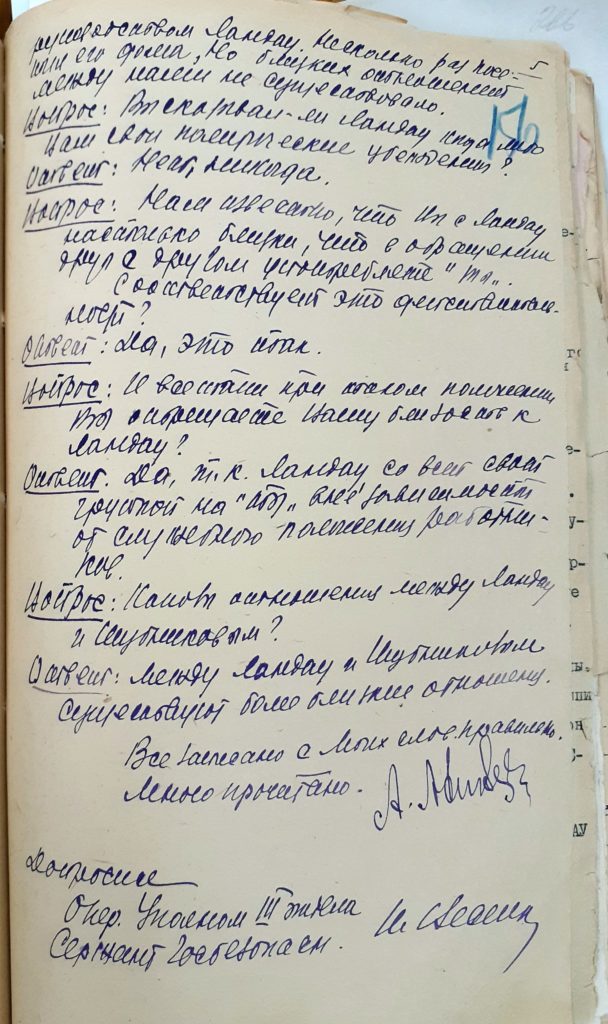 руководством Ландау. Несколько раз посе-
щал его дома, но близких отношений
между нами не существовало.
Вопрос: Высказывал-ли Ландау когда либо
Вам свои политические убеждения?
Ответ: Нет, никогда.
Вопрос: Нам известно, что Вы с Ландау
настолько близки, что в обращении
друг с другом употребляете "ты".
Соответствует это действитель-
ности?
Ответ: Да, это так.
Вопрос: И всетаки при таком положении
Вы отрицаете Вашу близость к
Ландау?
Ответ. Да, т.к. Ландау со всей своей
группой на "ты", вне зависимости
от служебного положения работни-
ков.
Вопрос: Каковы отношения между Ландау
и Шубниковым?
Ответ: Между Ландау и Шубниковым
существуют более близкие отношения.
Все записано с моих слов правильно.
Мною прочитано.
Допросил
Опер. Уполном III отдела
Сержант Госбезопасн.